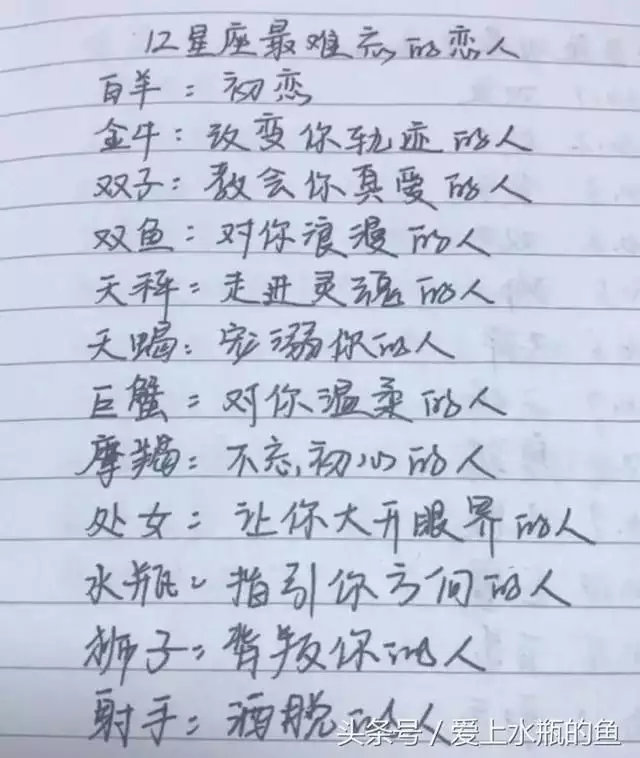 12星座最难忘的恋人
白羊：初恋
金牛：改变你轨迹的人
双子：教会你真爱的人
双鱼：对你浪漫的人
天秤：走进灵魂的人
天蝎：宠溺你的人
巨蟹：对你温柔的人
摩羯：不忘初心的人
处女：让你大开眼界的人
水瓶：指引你方向的人
狮子：背叛你的人
射手：洒脱的人
头条号／爱上水瓶的鱼